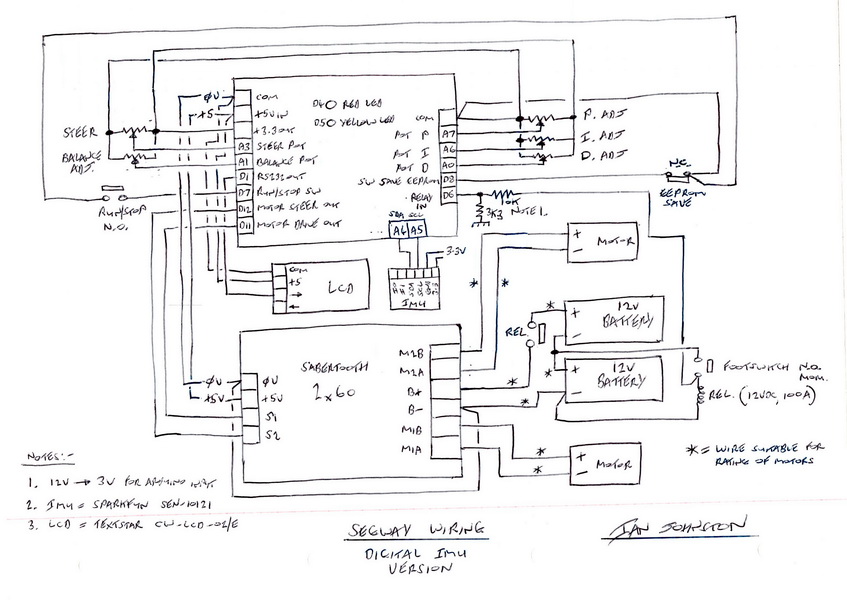 STEER
BALANCE
ADJ.
RUN/STOP
N.O.
ØV
+5
COM
+5V IN
+3.3 OUT
A3 STEER POT
A1 BALANCE POT
D1 RS232 OUT
D7 RUN/STOP SW
D12 MOTOR STEER OUT
D11 MOTOR DRIVE OUT
D4 O RED LED
D5 O YELLOW LED
COM
POT P A7
POT I A6
POT D A0
SW SAVE EEPROM D8
RELAY
IN
D6
SDA SCL
A4 A5
3.3V
IMU
P. ADJ
I. ADJ
D. ADJ
N.C.
EEPROM
SAVE
10K
3K3 NOTE 1.
COM
+5
LCD
+ MOTOR
-
REL.
* +
12V
BATTERY
-
* +
12V
BATTERY
-
FOOTSWITCH N.O.
MOM.
REL. (12VDC, 100A)
* = WIRE SUITABLE FOR
RATING OF MOTORS
SABERTOOTH
2x60
ØV ØV
+5V +5V
S1
S2
M2B
M2A
B+
B-
M1B
M1A
* +
* -
MOTOR
NOTES:-
1. 12V → 3V FOR ARDUINO INPUT
2. IMU = SPARKFUN SEN-10121
3. LCD = TEXTSTAR CW-LCD-02/E
SEGWAY WIRING
DIGITAL IMU
VERSION
IAN JOHNSTON